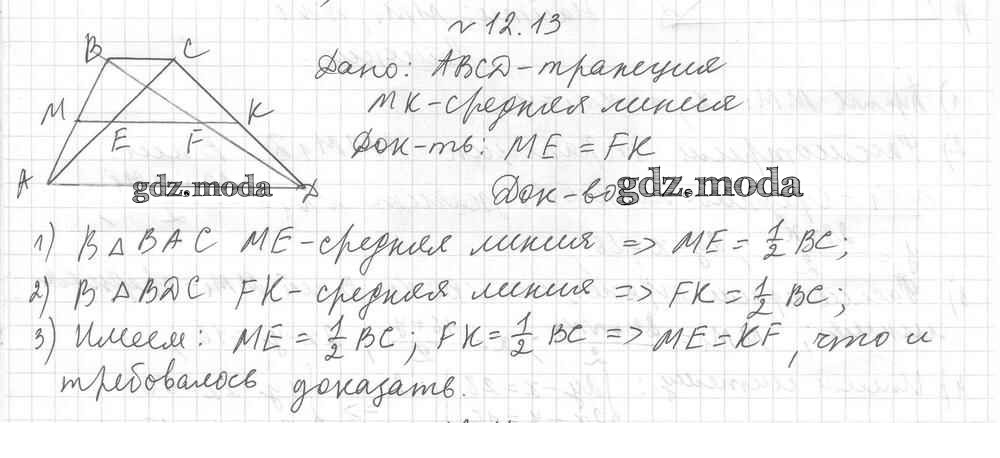 № 12.13
B C
Дано: ABCD-трапеция
M K
MK-средняя линия
E F
Док-ть: ME = FK
A D
gdz.moda
Док-во gdz.moda
1) В △ BAC ME-средняя линия => ME = 1/2 BC;
2) В △BDC FK-средняя линия => FK = 1/2 BC;
3) Имеем: ME = 1/2 BC; FK = 1/2 BC => ME=KF, что и
требовалось доказать.